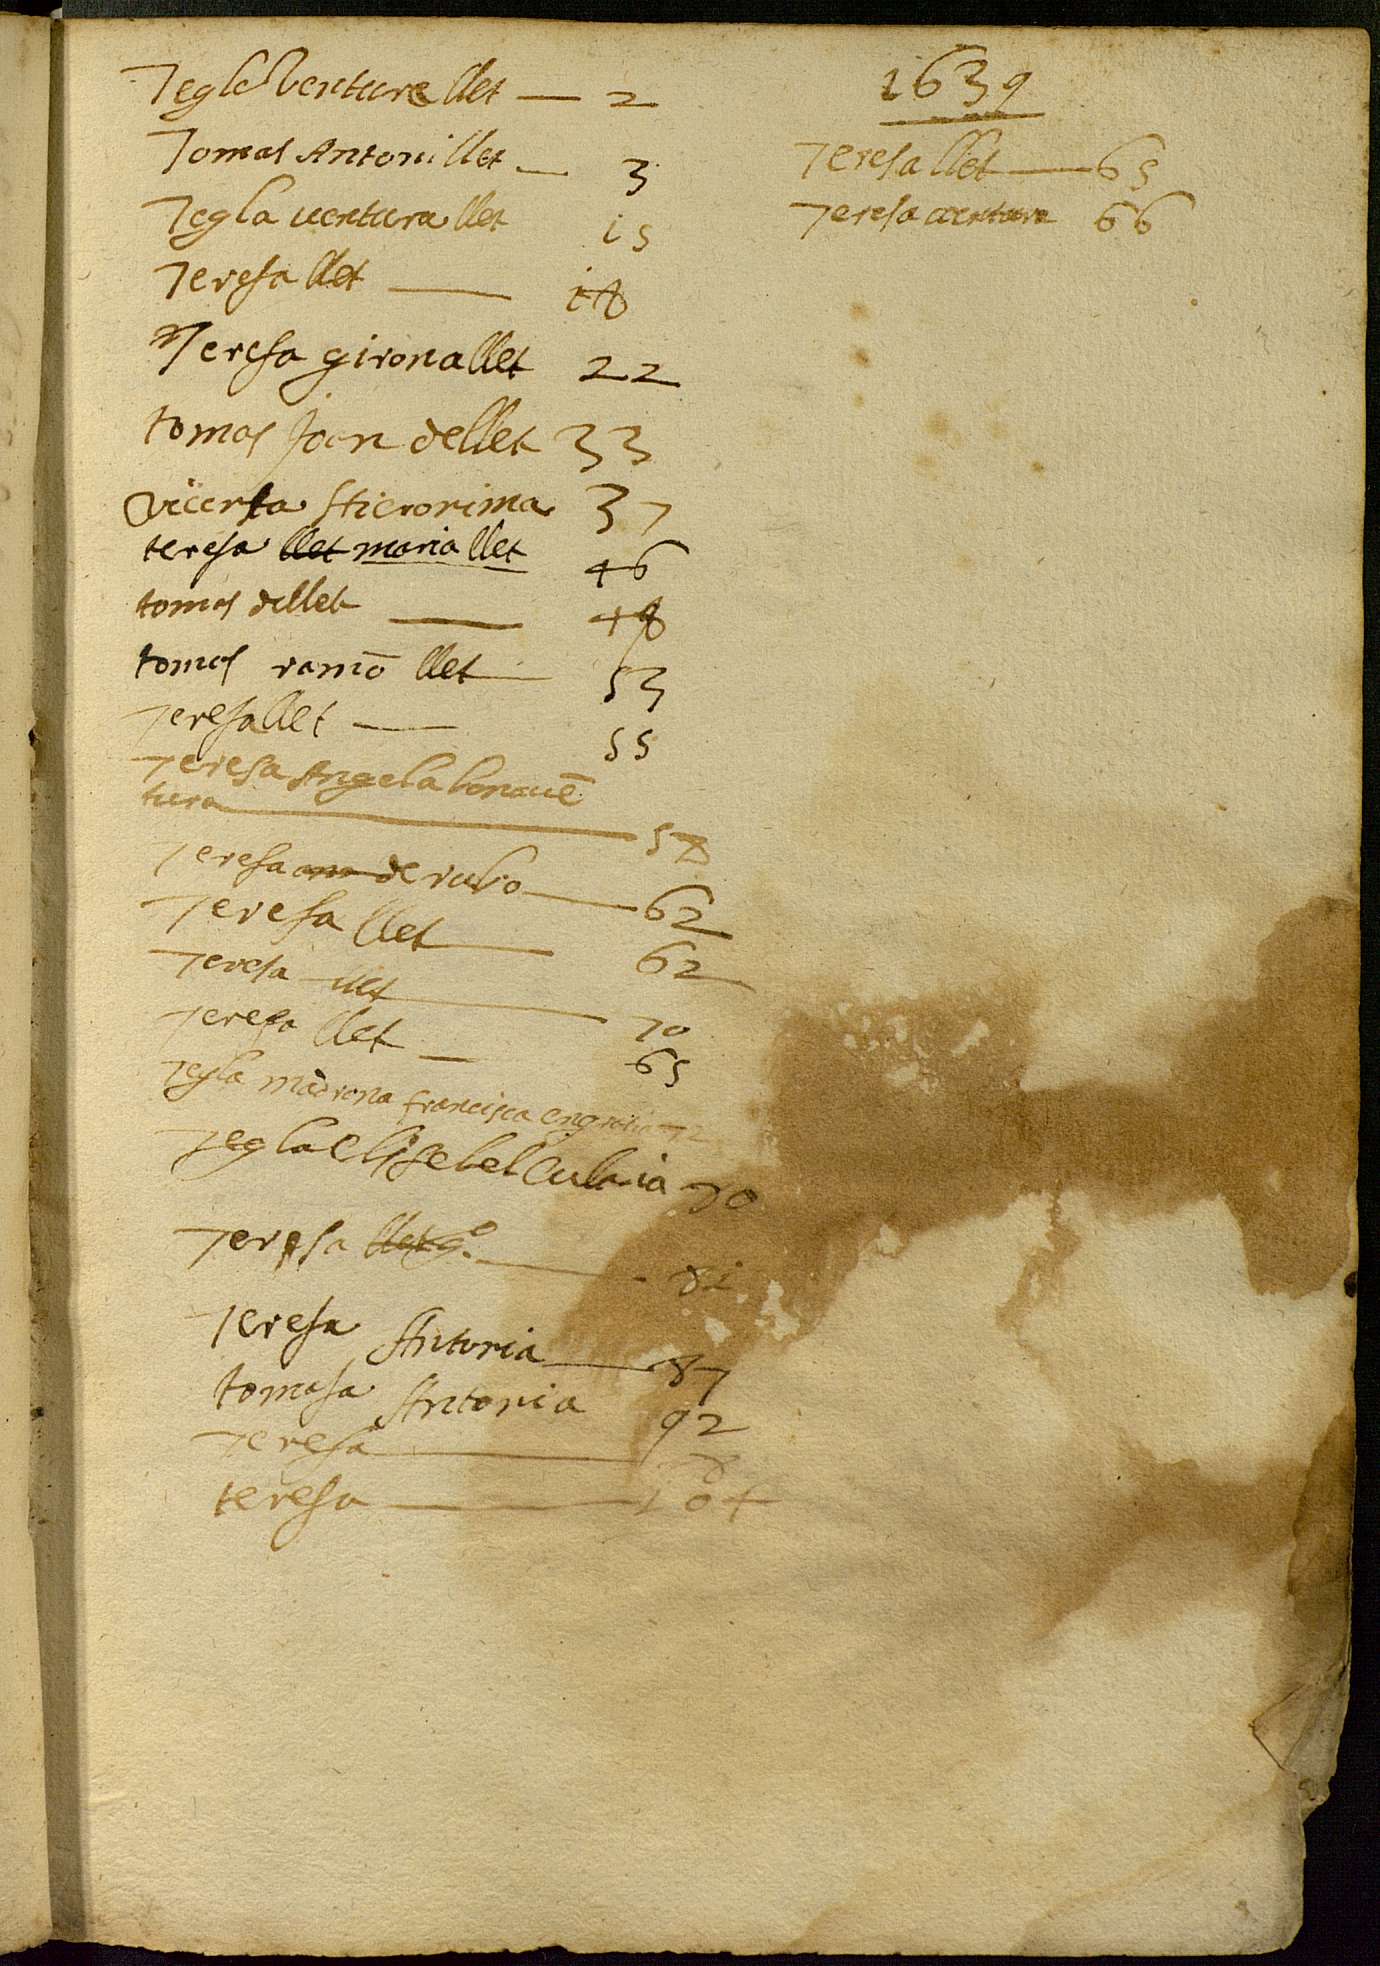 Tegla Ventura llet — 2
Tomas Antoni llet — 3
Tegla uentura llet 15
Teresa llet — 18
Teresa girona llet 22
tomas Joan de llet 33
Vicensa Hieronima 37
teresa llet maria llet 46
tomas de llet — 48
tomas ramō llet 53
Teresa llet — 55
Teresa Angela bonauē
tura — 58
Teresa de rubo — 62
Teresa llet — 62
Teresa llet — 70
Teresa llet — 65
Tegla madrona francisca engratia 72
Tegla Elisabet Eulalia 70
Teresa — 81
Teresa Antonia — 87
tomasa Antonia 92
Teresa —
teresa — 104
1639
Teresa llet — 65
Teresa uentura 66